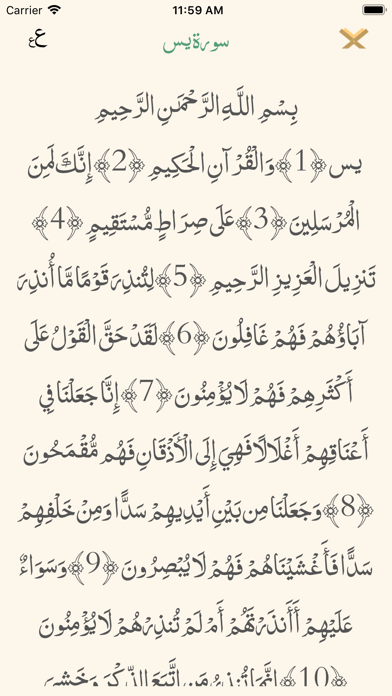 Carrier 11:59 AM
عع سورة يس
بِسْمِ اللَّهِ الرَّحْمَٰنِ الرَّحِيمِ
يس ﴿1﴾ وَالْقُرْآنِ الْحَكِيمِ ﴿2﴾ إِنَّكَ لَمِنَ
الْمُرْسَلِينَ ﴿3﴾ عَلَى صِرَاطٍ مُّسْتَقِيمٍ ﴿4﴾
تَنزِيلَ الْعَزِيزِ الرَّحِيمِ ﴿5﴾ لِتُنذِرَ قَوْمًا مَّا أُنذِرَ
آبَاؤُهُمْ فَهُمْ غَافِلُونَ ﴿6﴾ لَقَدْ حَقَّ الْقَوْلُ عَلَى
أَكْثَرِهِمْ فَهُمْ لَا يُؤْمِنُونَ ﴿7﴾ إِنَّا جَعَلْنَا فِي
أَعْنَاقِهِمْ أَغْلَالًا فَهِيَ إِلَى الْأَذْقَانِ فَهُم مُّقْمَحُونَ
﴿8﴾ وَجَعَلْنَا مِن بَيْنِ أَيْدِيهِمْ سَدًّا وَمِنْ خَلْفِهِمْ
سَدًّا فَأَغْشَيْنَاهُمْ فَهُمْ لَا يُبْصِرُونَ ﴿9﴾ وَسَوَاءٌ
عَلَيْهِمْ أَأَنذَرْتَهُمْ أَمْ لَمْ تُنذِرْهُمْ لَا يُؤْمِنُونَ
﴿10﴾ إِنَّمَا تُنذِرُ مَنِ اتَّبَعَ الذِّكْرَ وَخَشِيَ